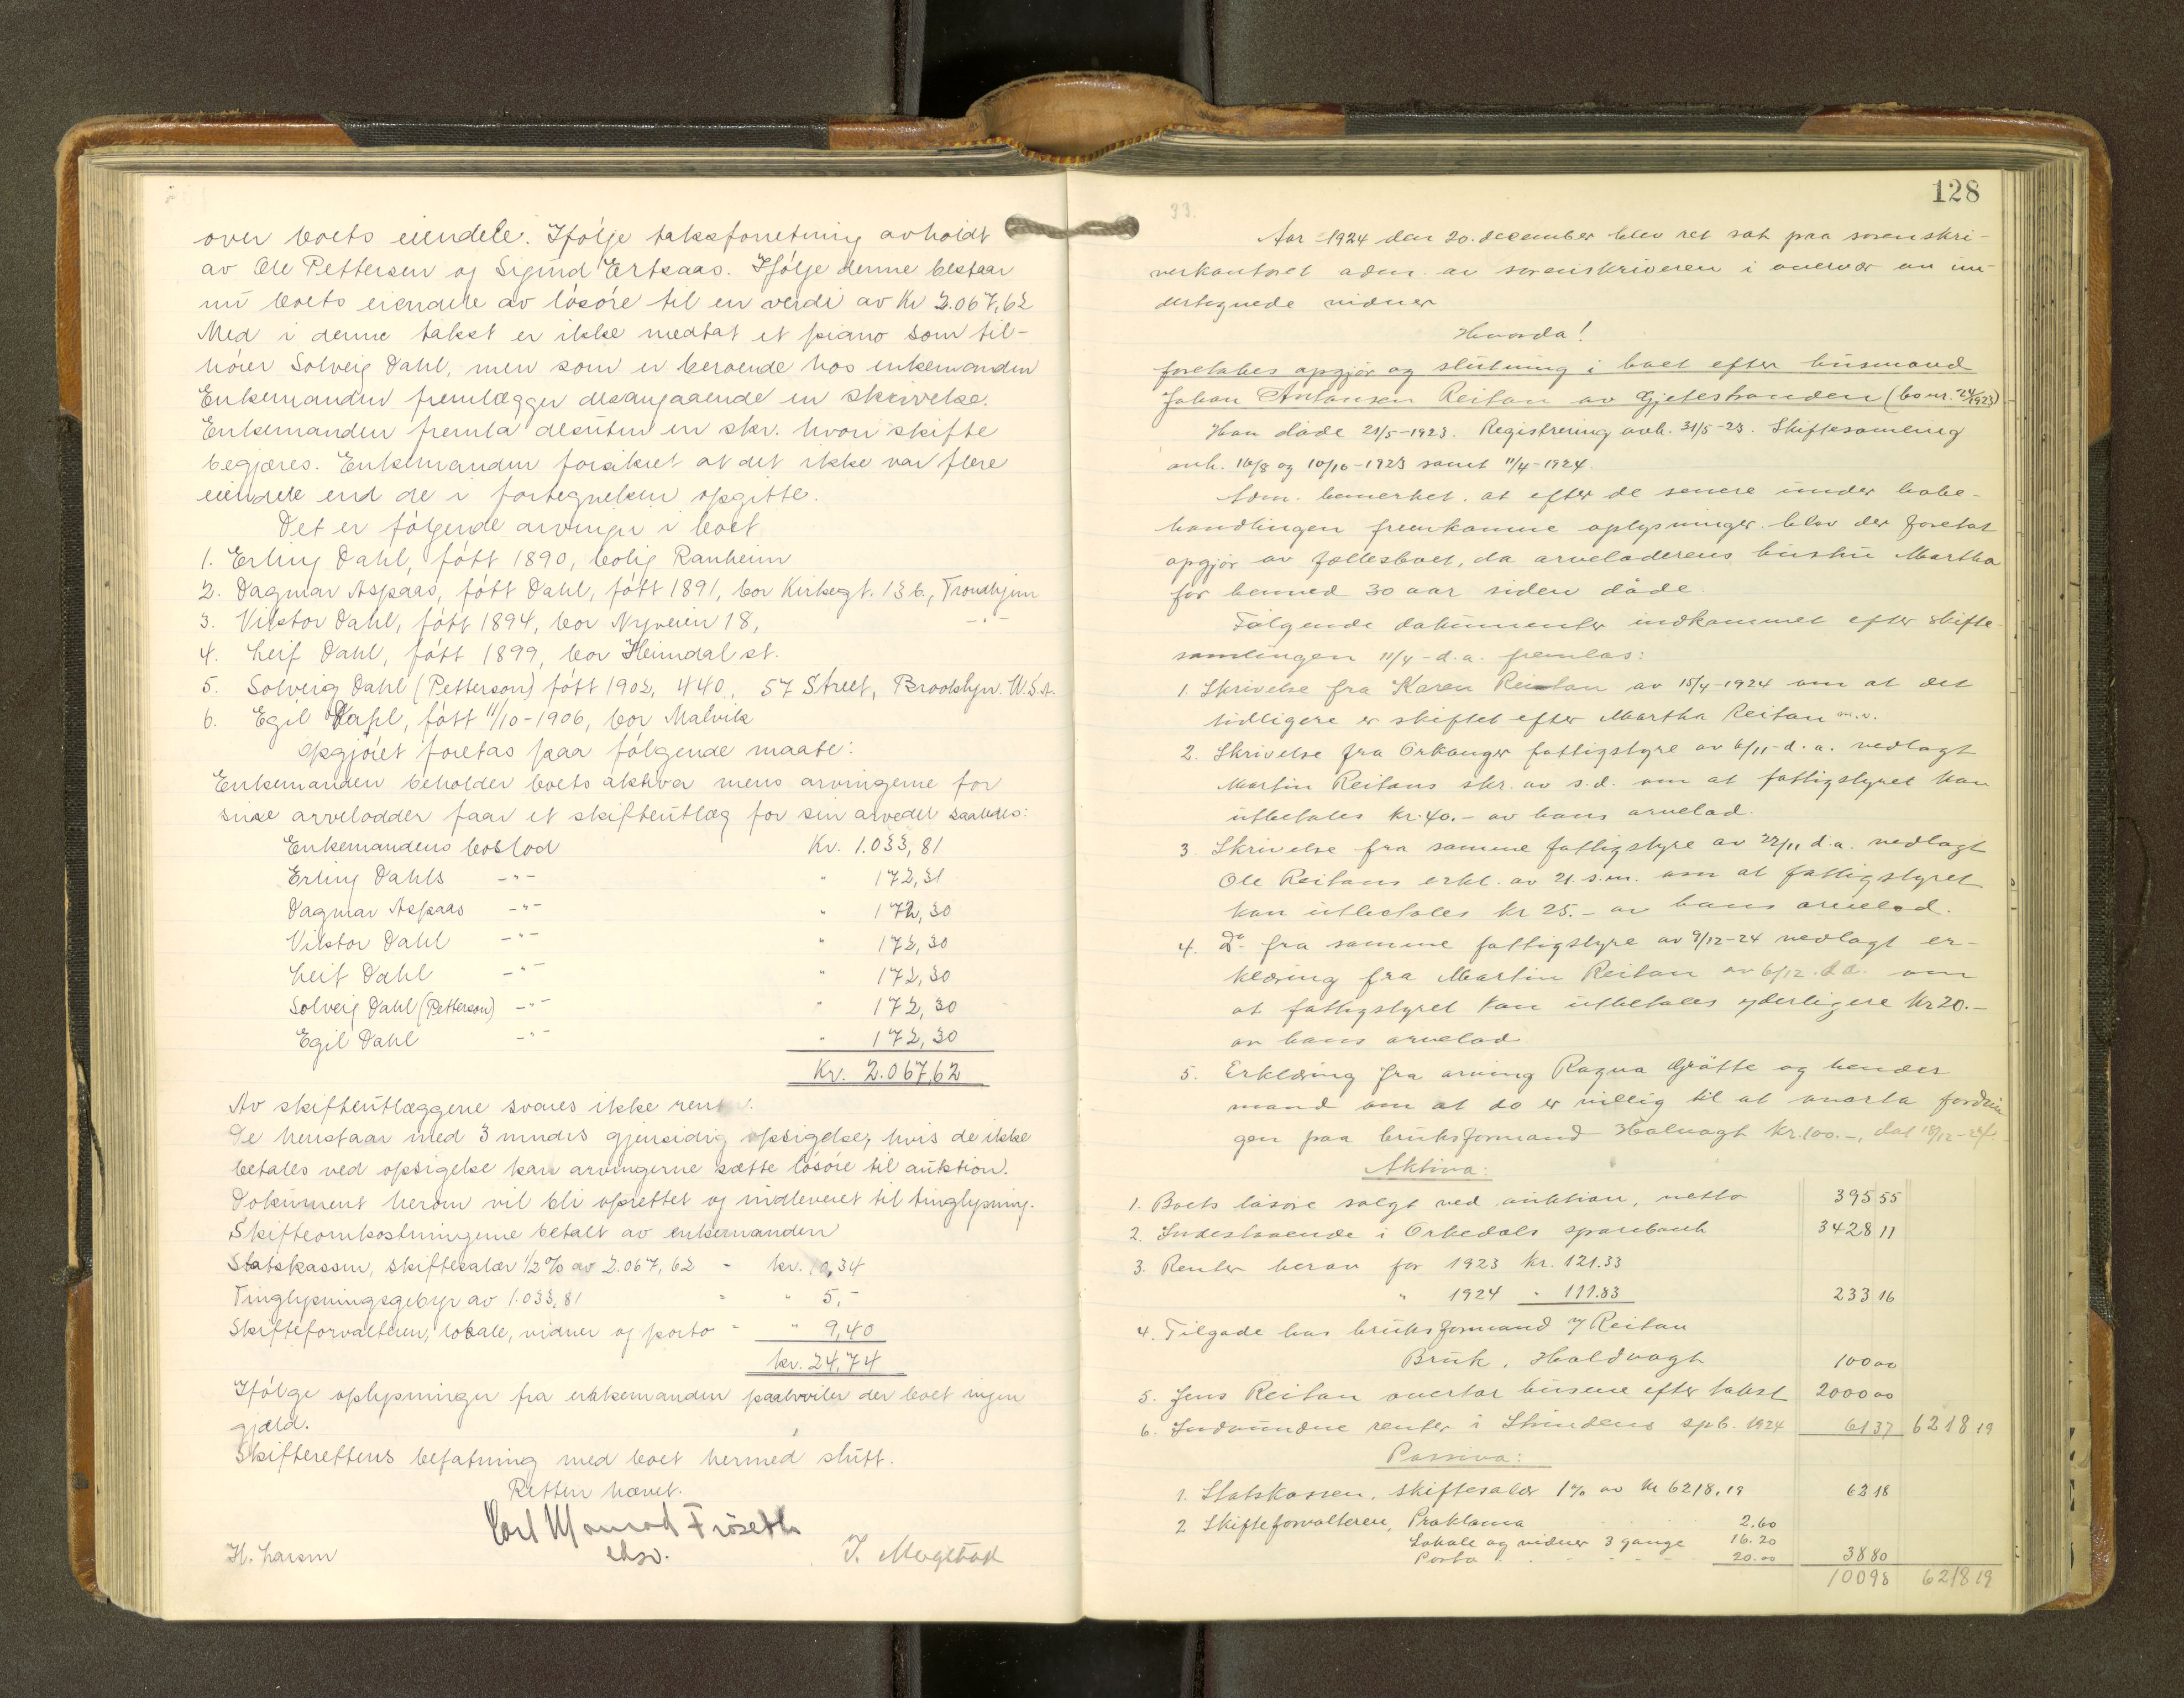 over boets eiendele. Ifølge taksforretning avholdt
av Ole Pettersen og Sigurd Ertsaas. Ifølge denne bestaar
nu boets eiendele av løsøre til en verdi av Kr 2.067,62
Med i denne takst er ikke medtat et piano som til-
hører Solveig Dahl, men som er beroende hos enkemanden
Enkemanden fremlægger desangaaende en skrivelse.
Enkemanden fremla desuten en skr. hvori skifte
begjæres. Enkemanden forsikret at det ikke var flere
eiendele end de i fortegnelsen opgitte.
Det er følgende arvinger i boet
1. Erling Dahl, født 1890, bolig Ranheim
2. Dagmar Aspaas, født Dahl, født 1891, bor Kirkegt. 13 b., Trondhjem
3. Viktor Dahl, født 1894, bor Nyveien 18, -"-
4. Leif Dahl, født 1899, bor Heimdal st.
5. Solveig Dahl (Petterson) født 1902, 440, 57 Street, Brooklyn. U.S.A.
6. Egil Dahl, født 11/10-1906, bor Malvik
Opgjøret foretas paa følgende maate:
Enkemanden beholder boets aktiva mens arvingerne for
sine arvelodder faar et skifteutlæg for sin arvedel saaledes:
Enkemandens boslod Kr. 1.033,81
Erling Dahls -"- " 172,31
Dagmar Aspaas -"- " 172,30
Viktor Dahl -"- " 172,30
Leif Dahl -"- " 172,30
Solveig Dahl (Petterson) -"- " 172,30
Egil Dahl -"- " 172,30
Kr. 2.067,62
Av skifteutlæggene svares ikke rente.
De henstaar med 3 mndrs gjensidig opsigelse, hvis de ikke
betales ved opsigelse kan arvingerne sætte løsøre til auktion.
Dokument herom vil bli oprettet og indleveret til tinglysning.
Skifteomkostningene betalt av enkemanden
Statskassen, skiftesalær 1/2 % av 2.067,62 - kr. 10,34
Tinglysningsgebyr av 1.033,81 " " 5,-
Skifteforvalteren, lokale, vidner og porto - " 9,40
kr. 24,74
Ifølge oplysninger fra enkemanden paahviler der boet ingen
gjæld.
Skifterettens befatning med boet hermed slutt.
Retten hævet.
Carl Monrad Frøseth
eksp.
H. Larsen J. Mogstad
128
33.
Aar 1924 den 20. december blev ret sat paa sorenskri-
verkontoret adm. av sorenskriveren i overvær av un-
dertegnede vidner
Hvorda!
foretokes opgjør og slutning i boet efter husmand
Johan Antonsen Reitan av Gjetestranden (bo nr. 24/1923)
Han døde 21/5-1923. Registrering avh. 31/5-23. Skiftesamling
avh. 16/8 og 10/10-1923 samt 11/4-1924.
Adm. bemerket, at efter de senere under bobe-
handlingen fremkomne oplysninger blev der foretat
opgjør av fællesboet, da arveladerens hustru Martha
for henved 30 aar siden døde.
Følgende dokumenter indkommet efter skifte
samlingen 11/4-d.a. fremlas:
1. Skrivelse fra Karen Reitan av 15/4-1924 om at det
tidligere er skiftet efter Martha Reitan m.v.
2. Skrivelse fra Orkanger fattigstyre av 6/11-d.a. vedlagt
Martin Reitans skr. av s.d. om at fattigstyret kan
utbetales kr. 40.- av hans arvelod.
3. Skrivelse fra samme fattigstyre av 22/11 d.a. vedlagt
Ole Reitans erkl. av 21. s.m. om at fattigstyret
kan utbetales kr 25.- av hans arvelod.
4. Do. fra samme fattigstyre av 9/12-24 vedlagt er-
klæring fra Martin Reitan av 6/12. d.a. om
at fattigstyret kan utbetales yderligere kr 20.-
av hans arvelod.
5. Erklæring fra arving Ragna Grøtte og hendes
mand om at de er villig til at overta fordrin
gen paa bruksformand Holvagt kr. 100.-, dat 18/12-24.
Aktiva:
1. Boets løsøre solgt ved auktion, netto 395 55
2. Indestaaende i Orkedals sparebank 3428 11
3. Renter herav for 1923 kr. 121.33
" 1924 " 111.83 233 16
4. Tilgode hos bruksformand Reitan
Bruk, Holdvagt 100 00
5. Jens Reitan overtar husene efter takst 2000 00
6. Indvundne renter i Strindens spb. 1924 61 37 6218 19
Passiva:
1. Statskassen, skiftesalær 1% av kr 6218,19 62 18
2 Skifteforvalteren, Proklama 2.60
Lokale og vidner 3 gange 16.20
Porto 20.00 38 80
100 98 6218 19